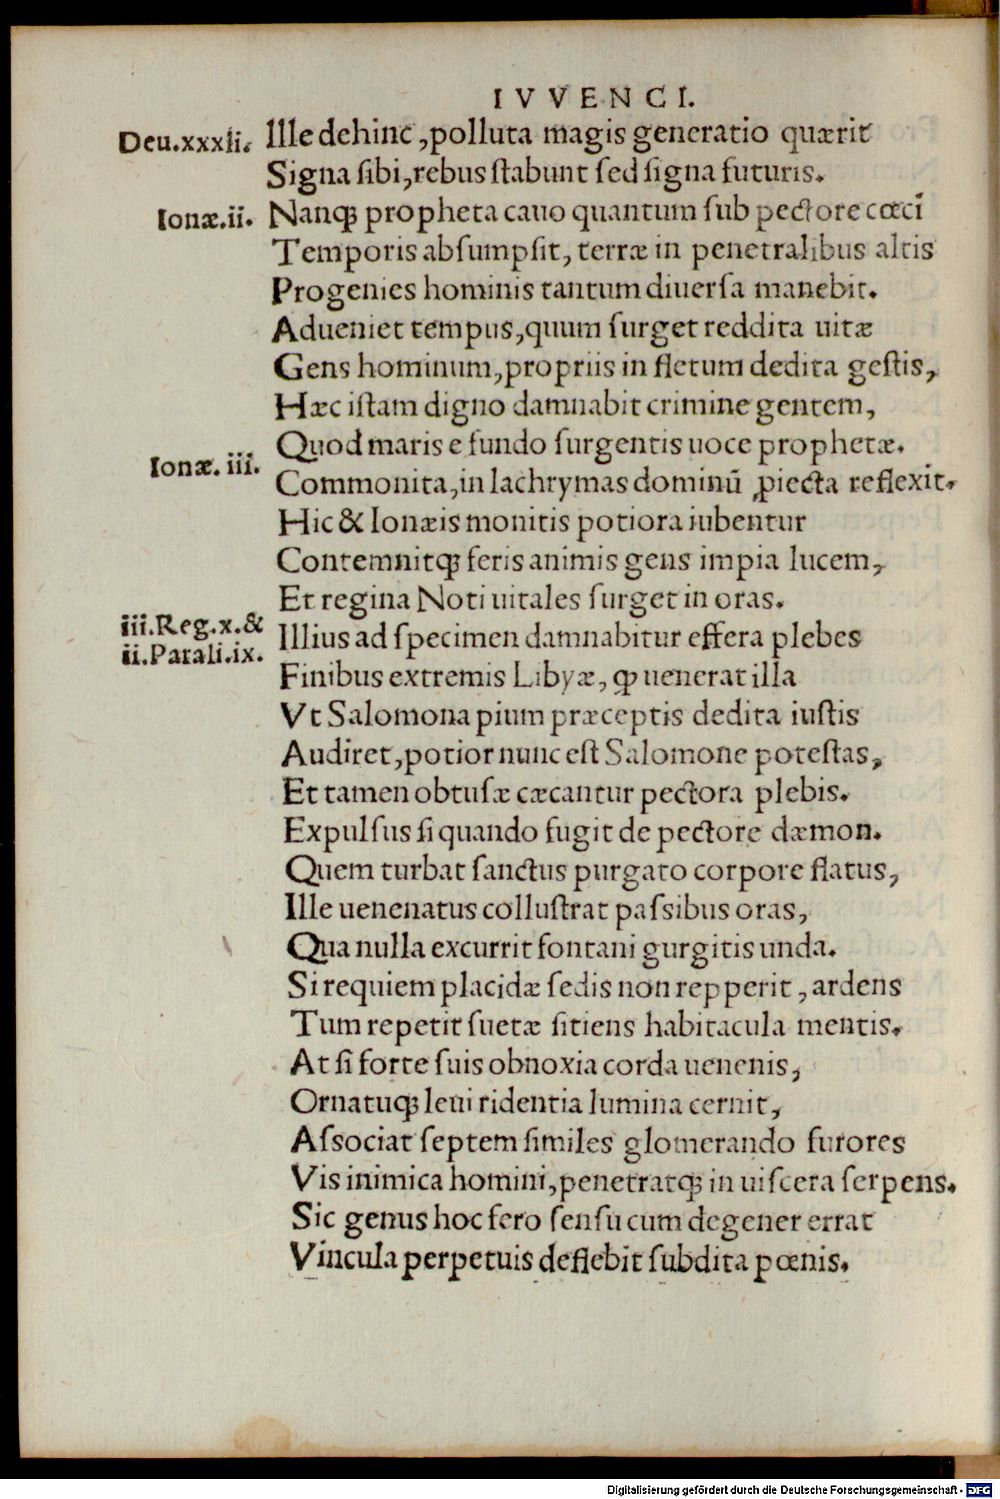 IVVENCI.
Deu.xxxii. Ille dehinc, polluta magis generatio quærit
Signa sibi, rebus stabunt sed signa futuris.
Ionæ.ii. Nanqꝫ propheta cauo quantum sub pectore cœci
Temporis absumpsit, terræ in penetralibus altis
Progenies hominis tantum diuersa manebit.
Adueniet tempus, quum surget reddita uitæ
Gens hominum, propriis in fletum dedita gestis,
Hæc istam digno damnabit crimine gentem,
Quod maris e fundo surgentis uoce prophetæ.
Ionæ.iii. Commonita, in lachrymas dominū ꝓiecta reflexit.
Hic & Ionæis monitis potiora iubentur
Contemnitqꝫ feris animis gens impia lucem,
Et regina Noti uitales surget in oras.
iii.Reg.x.& Illius ad specimen damnabitur effera plebes
ii.Parali.ix. Finibus extremis Libyæ, ꝙ uenerat illa
Vt Salomona pium præceptis dedita iustis
Audiret, potior nunc est Salomone potestas,
Et tamen obtusæ cæcantur pectora plebis.
Expulsus si quando fugit de pectore dæmon.
Quem turbat sanctus purgato corpore flatus,
Ille uenenatus collustrat passibus oras,
Qua nulla excurrit fontani gurgitis unda.
Si requiem placidæ sedis non repperit, ardens
Tum repetit suetæ sitiens habitacula mentis.
At si forte suis obnoxia corda uenenis,
Ornatuqꝫ leui ridentia lumina cernit,
Associat septem similes glomerando furores
Vis inimica homini, penetratqꝫ in uiscera serpens.
Sic genus hoc fero sensu cum degener errat
Vincula perpetuis deflebit subdita pœnis.
Digitalisierung gefördert durch die Deutsche Forschungsgemeinschaft - DFG